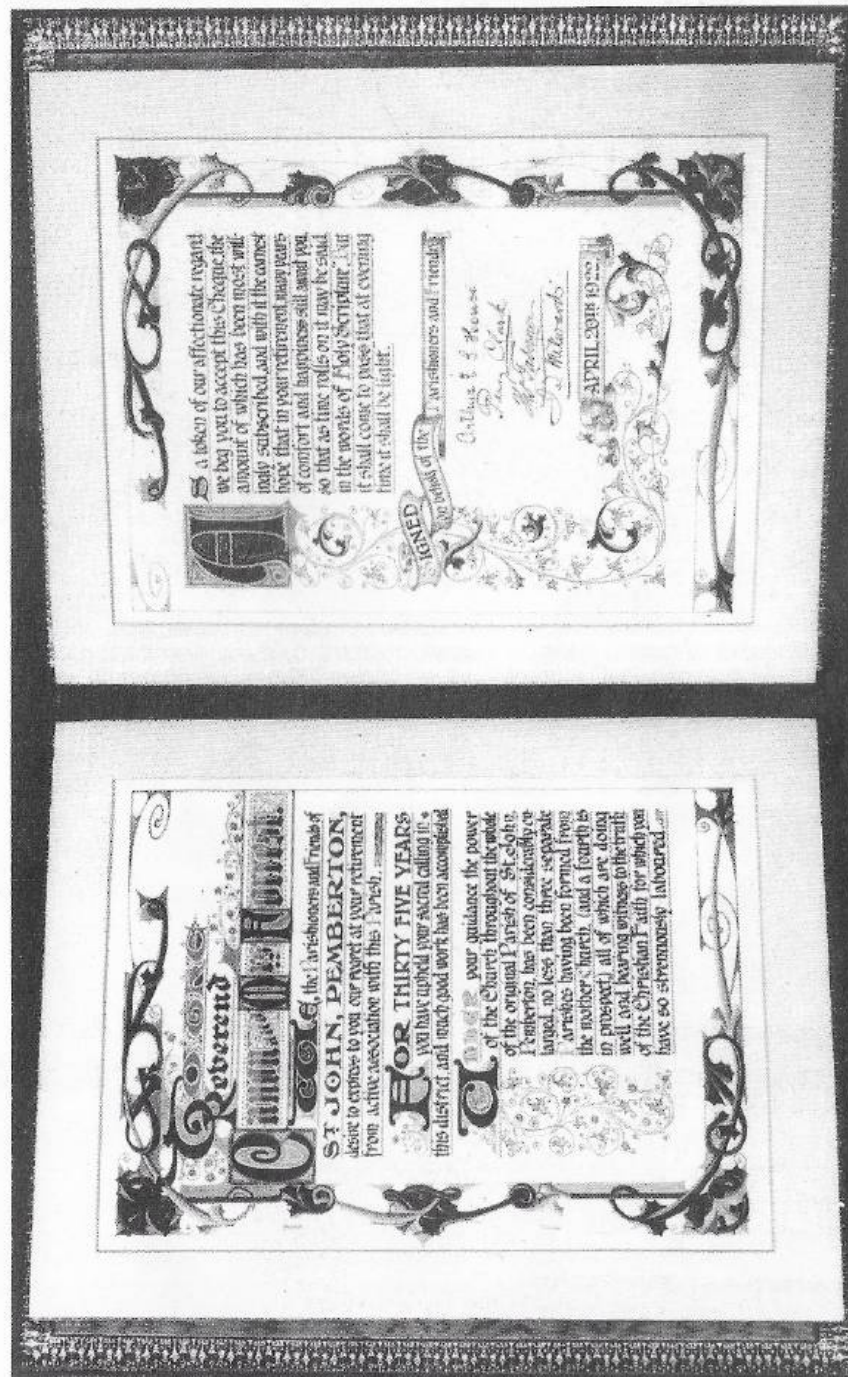 Reverend
Canon
WE, the Parishioners and Friends of
ST JOHN, PEMBERTON,
desire to express to you our regret at your retirement
from active association with this Parish.
FOR THIRTY FIVE YEARS
you have upheld your sacred calling in
this district and much good work has been accomplished
UNDER your guidance the power
of the Church throughout the whole
of the original Parish of St. John,
Pemberton, has been considerably en-
larged, no less than three separate
Parishes having been formed from
the mother Church, (and a fourth is
in prospect) all of which are doing
well and bearing witness to the truth
of the Christian Faith for which you
have so strenuously laboured
AS a token of our affectionate regard
we beg you to accept this Cheque, the
amount of which has been most wil-
ingly subscribed, and with it the earnest
hope that in your retirement, many years
of comfort and happiness still await you,
so that as time rolls on it may be said
in the words of Holy Scripture, "But
it shall come to pass that at evening
time it shall be light.
SIGNED
on behalf of the Parishioners and Friends
Arthur
Percy Clark
APRIL 20TH 1922